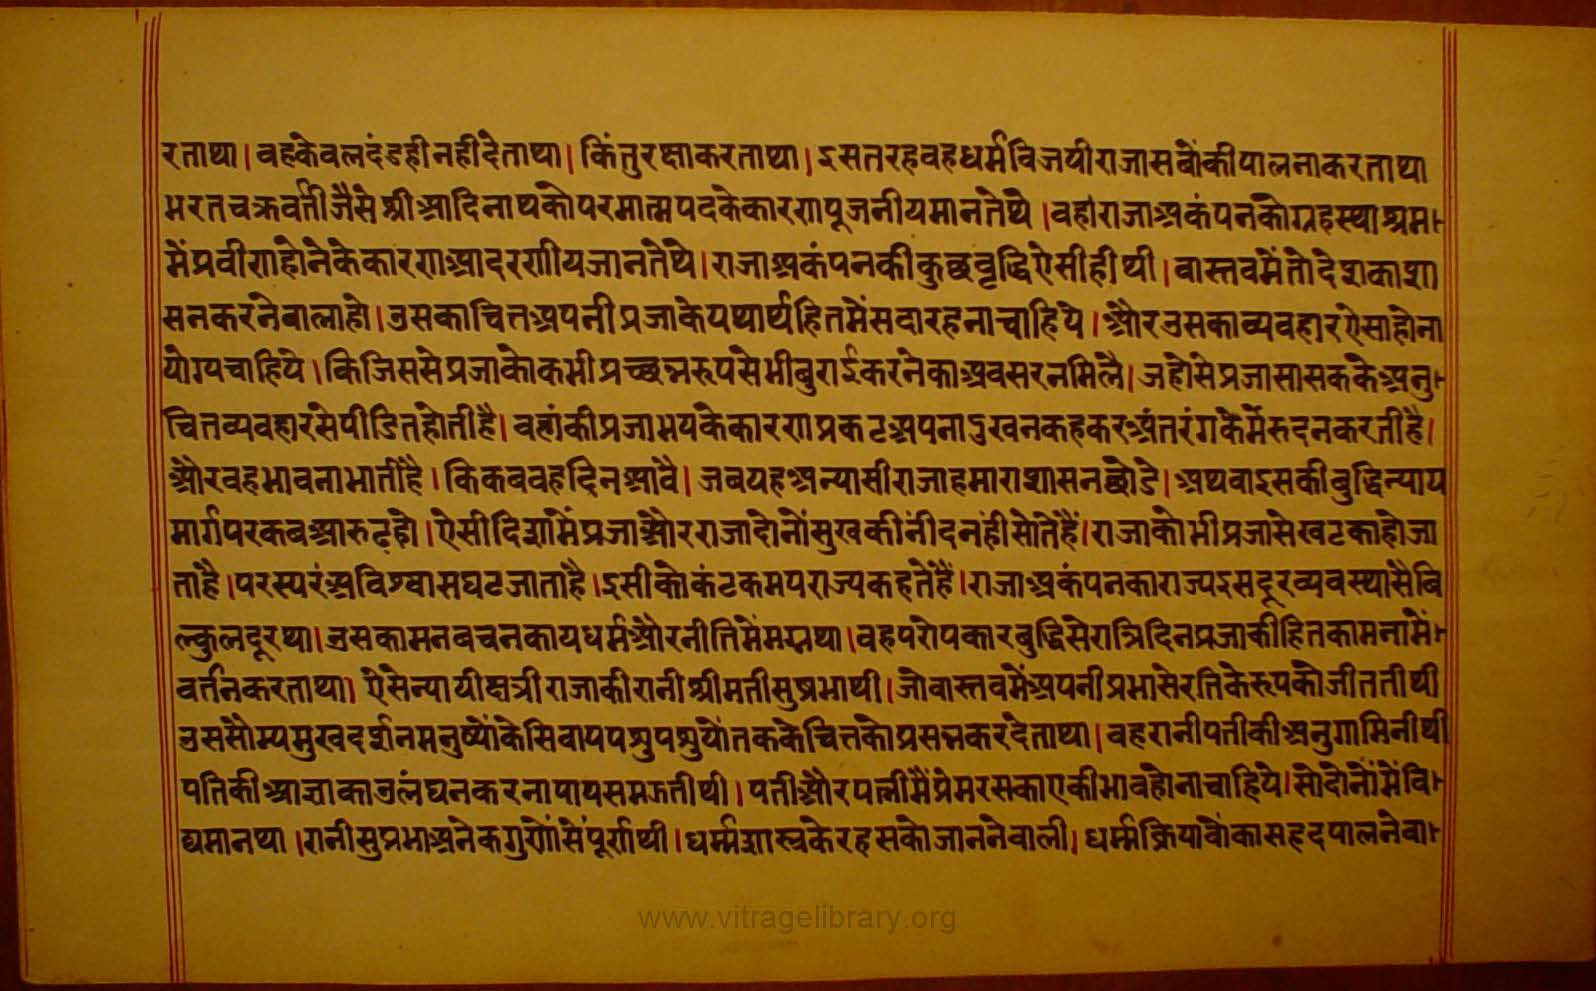 रताथा। वहकेवलदंडहीनहीदेताथा। किंतुरक्षाकरताथा। इसतरहवहधर्मविजयीराजासबोंकीपालनाकरताथा
भरतचक्रवर्तीजैसेश्रीआदिनाथकोपरमात्मपदकेकारणपूजनीयमानतेथे। वहांराजाअकंपनकोगृहस्थाश्रम
मेंप्रवीणहोनेकेकारणआदरणीयजानतेथे। राजाअकंपनकीकुछबृद्धिऐसीहीथी। वास्तवमेंतोदेशकाशा
सनकरनेवालाहो। उसकाचित्तअपनीप्रजाकेयथार्थहितमेंसदारहनाचाहिये। औरउसकाव्यवहारऐसाहोना
योग्यचाहिये। किजिससेप्रजाकोकभीप्रच्छन्नरुपसेभीबुराईकरनेकाअवसरनमिलै। जहांसेप्रजासासककेअनु
चितव्यवहारसेपीडितहोतीहै। वहांकीप्रजाभयकेकारणप्रकटअपनादुखनकहकरअंतरंगकेमेंरुदनकरतीहै।
औरवहभावनाभातीहै। किकबवहदिनआवै। जबयहअन्यासीराजाहमाराशासनछोडे। अथवाइसकीबुद्धिन्याय
मार्गपरकबआरुढहो। ऐसीदिशामेंप्रजाऔरराजादोनोंसुखकीनींदनहींसोतेहैं। राजाकोभीप्रजासेखटकाहोजा
ताहै। परस्परअविश्वासघटजाताहै। इसीकोकंटकमयराज्यकहतेहैं। राजाअकंपनकाराज्यइसदूरव्यवस्थासैबि
ल्कुलदूरथा। उसकामनबचनकायधर्मऔरनीतिमेंमग्नथा। वहपरोपकारबुद्धिसेरात्रिदिनप्रजाकीहितकामनामें
वर्तनकरताथा। ऐसेन्यायीक्षत्रीराजाकीरानीश्रीमतीसुप्रभाथी। जोवास्तवमेंअपनीप्रभासेरतिकेरूपकोजीततीथी
उससौम्यमुखदर्शनमनुष्योंकेसिवायपशुपशुयोंतककेचित्तकोप्रसन्नकरदेताथा। वहरानीपतीकीअनुगामिनीथी
पतिकीआज्ञाकाउलंघनकरनापापसमजतीथी। पतीऔरपत्नीमैंप्रेमरसकाएकीभावहोनाचाहिये। सोदोनोंमेंवि
द्यमानथा। रानीसुप्रभाअनेकगुणोंसेंपूर्णथी। धर्म्मशास्त्रकेरहसकोजाननेवाली। धर्म्मक्रियावोंकासहृदपालनेवा
www.vitragelibrary.org